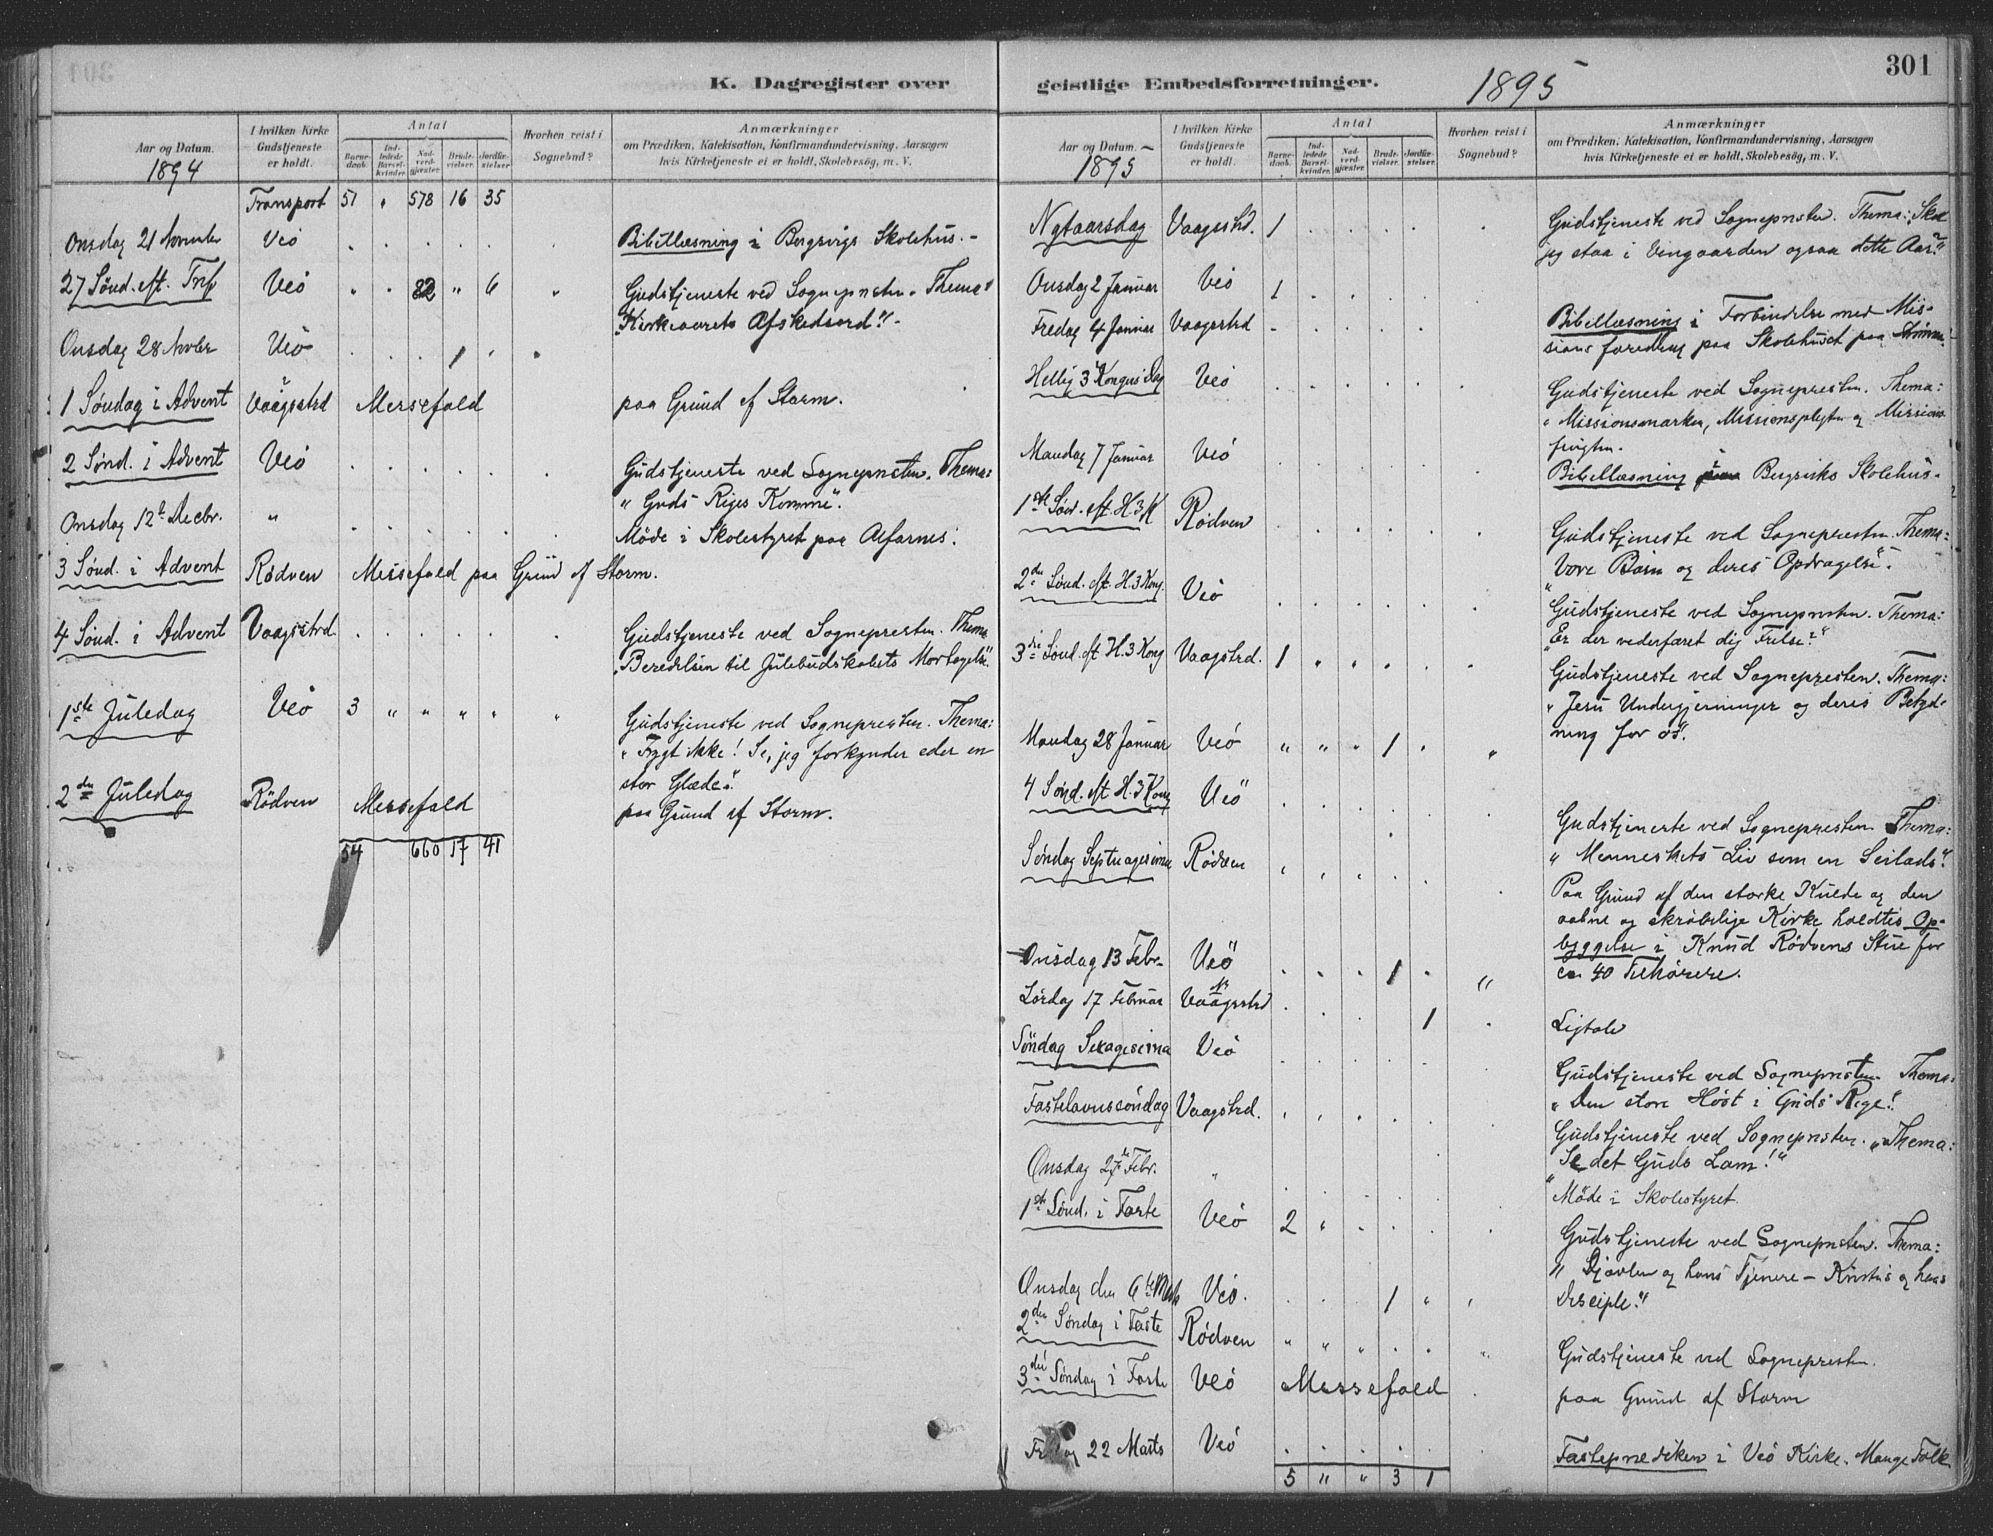 K. Dagregister over
Aar og Datum.
1894
I hvilken Kirke Gudstjeneste er holdt.
Antal
Barnedaab.
Indledede Barselkvinder.
Nadverdgjæster.
Brudevielser.
Jordfæstelser.
Hvorhen reist i Sognebud?
Anmærkninger
om Prædiken, Katekisation, Konfirmandundervisning, Aarsagen
hvis Kirketjeneste ei er holdt, Skolebesøg, m. V.
Transport 51 " 578 16 35
Onsdag 21 November Veö Bibellæsning i Bergsvigs Skolehus. -
27 Sönd. eft. Trif Veö 82 " 6 Gudstjeneste ved Sognepresten. Thema:
"Kirkeaarets Afskedsord". -
Onsdag 28 Novbr Veö 1
1 Söndag i Advent Vaagstrd Messefald paa Grund af Storm.
2 Sönd. i Advent Veö Gudstjeneste ved Sognepresten. Thema:
"Guds Riges Komme".
Onsdag 12te Decbr. " Möde i Skolestyret paa Alfarnes.
3 Sönd. i Advent Rödven Messefald paa Grund af Storm.
4 Sönd. i Advent Vaagstrd. Gudstjeneste ved Sognepresten. Thema
"Beredelsen til Julebudskabets Modtagelse".
1ste Juledag Veö 3 " " " " Gudstjeneste ved Sognepresten. Thema:
"Frygt ikke! Se, jeg forkynder eder en
stor Glæde".
2den Juledag Rödven Messefald paa Grund af Storm.
54 660 17 41
geistlige Embedsforretninger.
1895
301
Aar og Datum.
1895
I hvilken Kirke Gudstjeneste er holdt.
Antal
Barnedaab.
Indledede Barselkvinder.
Nadverdgjæster.
Brudevielser.
Jordfæstelser.
Hvorhen reist i Sognebud?
Anmærkninger
om Prædiken, Katekisation, Konfirmandundervisning, Aarsagen
hvis Kirketjeneste ei er holdt, Skolebesøg, m. V.
Nytaarsdag Vaagstrd. 1 Gudstjeneste ved Sognepresten. Thema: Skal
jeg staa i Vingaarden ogsaa dette Aar?"
Onsdag 2 Januar Veö 1
Fredag 4 Januar Vaagstrd Bibellæsning i Forbindelse med Mis-
sions foredrag paa Skolehuset paa
Hellig 3 Kongers Dag Veö Gudstjeneste ved Sognepresten. Thema:
"Missionsmarken, Missionspligten og Missions-
frugten.
Mandag 7 Januar Veö Bibellæsning i Bergsviks Skolehus.
1ste Sönd. eft. H. 3 K Rödven Gudstjeneste ved Sognepresten. Thema:
"Vore Børn og deres Opdragelse".
2den Sönd. eft. H. 3 Kong. Veö Gudstjeneste ved Sognepresten. Thema:
"Er der vederfaret dig Frelse?"
3die Sönd. eft H. 3 Kong Vaagstrd. 1 Gudstjeneste ved Sognepresten. Thema:
"Jesu Undergjerninger og deres Betyd-
ning for os".
Mandag 28 Januar Veö " " " 1
4 Sönd. eft H. 3 Kong Veö Gudstjeneste ved Sognepresten Thema:
"Menneskets Liv som en Seilads".
Söndag Septuagesima Rödven Paa Grund af den sterke Kulde og den
aabne og skröbelige Kirke holdtes Op-
byggelse i Knud Rödvens Stue for
ca 40 Tilhörere.
Onsdag 13 Febr. Veö 1
Lördag 17 Februar Vaagstrd 1 Ligtale
Söndag Sexagesima Veö Gudstjeneste ved Sognepresten Thema:
"Den store Höst i Guds Rige".
Fastelavnssöndag Vaagstrd. Gudstjeneste ved Sognepresten. Thema:
"Se det Guds Lam!"
Onsdag 27de Febr. " Möde i Skolestyret
1ste Sönd. i Faste Veö 2 Gudstjeneste ved Sognepresten. Thema:
"Djævlen og hans Tjenere - Kristus og hans
Disciple".
Onsdag den 6te Marts Veö. 1
2den Söndag i Faste Rödven Gudstjeneste ved Sognepresten.
3die Söndag i Faste Veö Messefald paa Grund af Storm
Fredag 22 Marts Veö Fasteprædiken i Veö Kirke. Mange Folk
5 " " 3 1